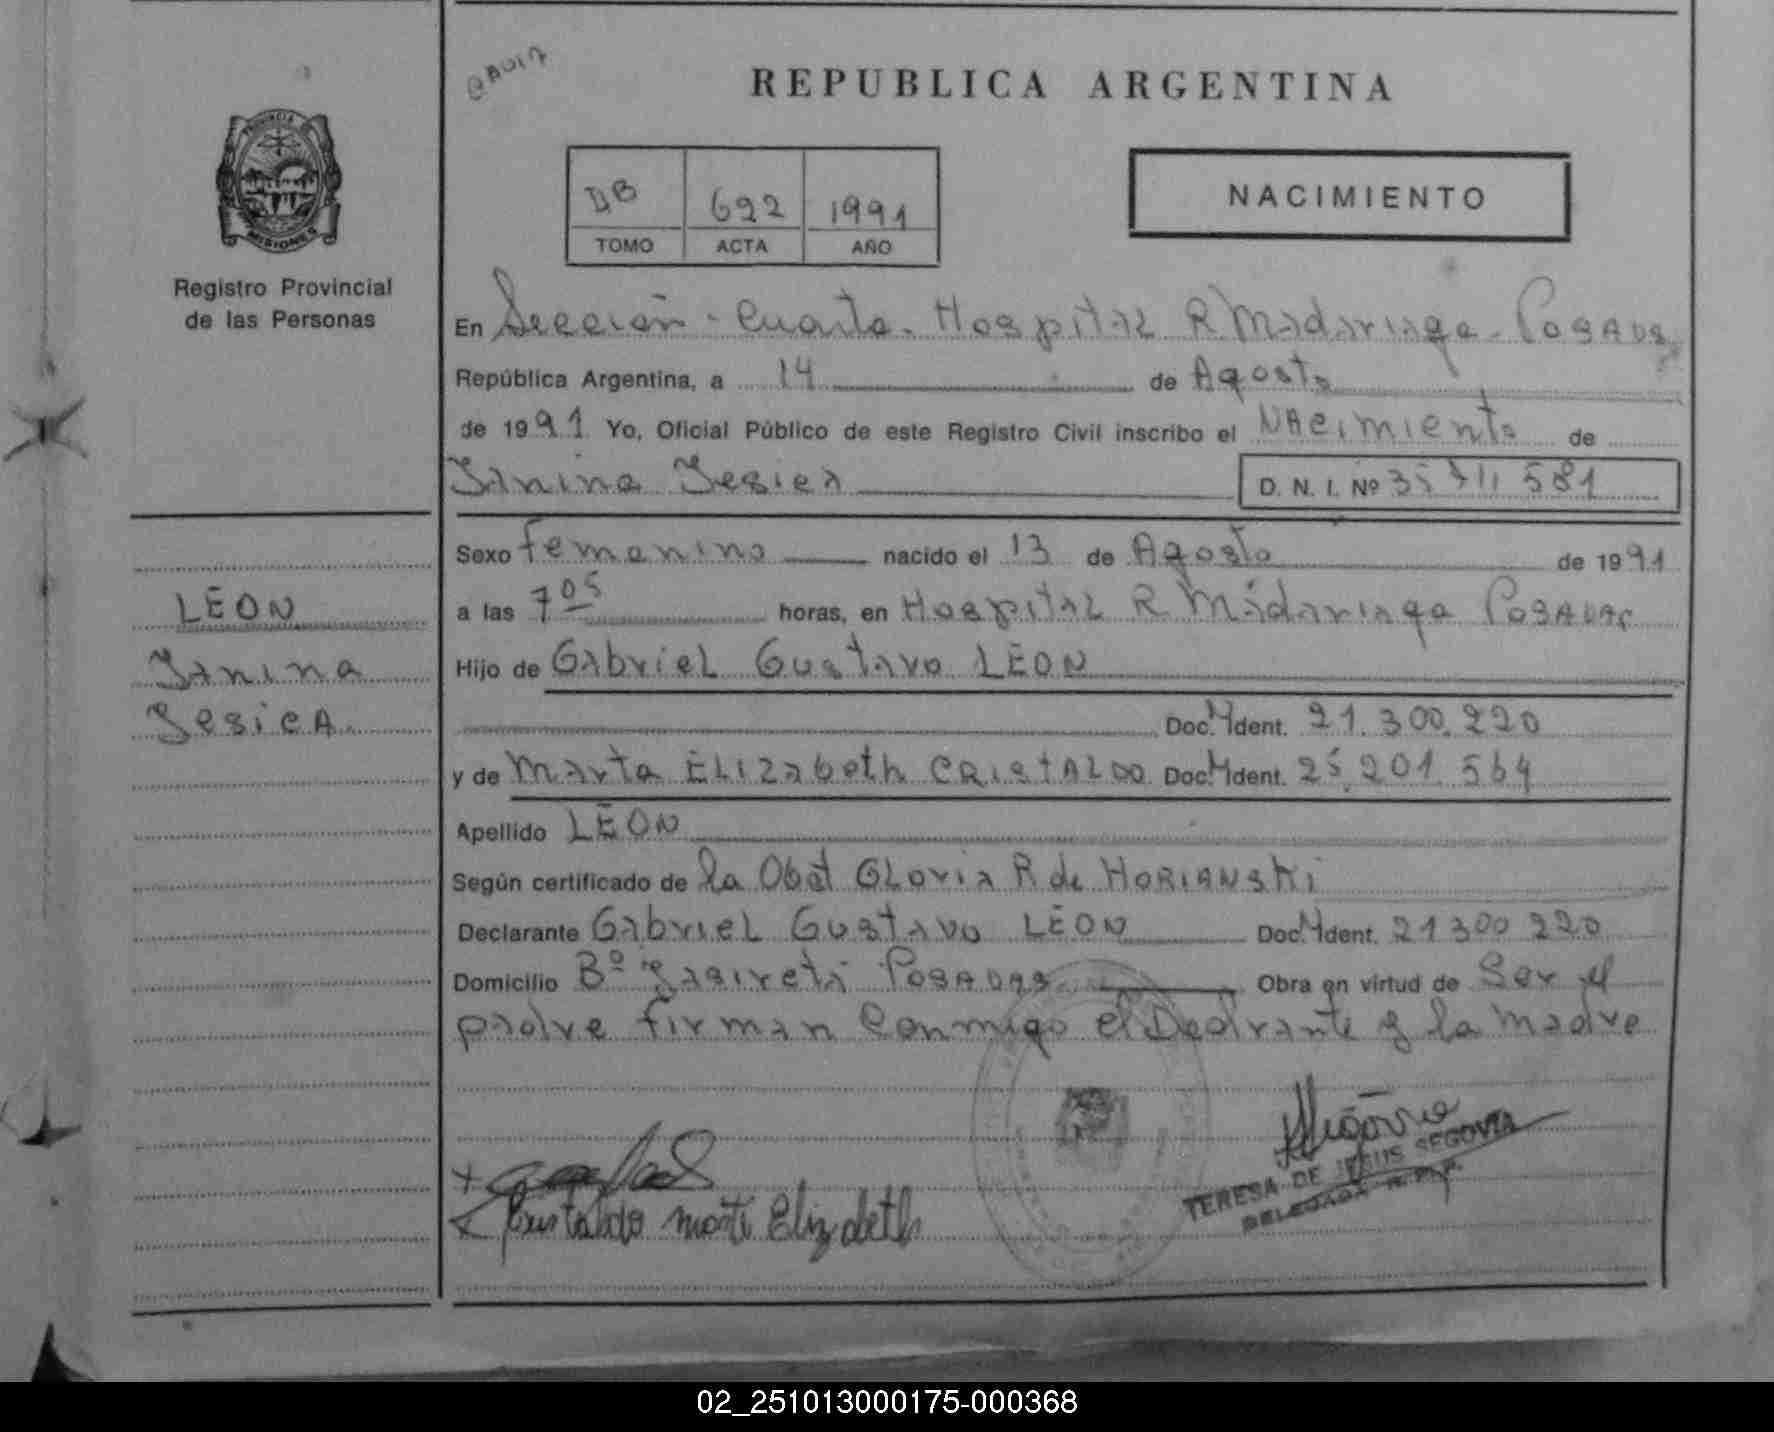 REPUBLICA ARGENTINA
PROVINCIA
MISIONES
Registro Provincial
de las Personas
DB 622 1991
TOMO ACTA AÑO
NACIMIENTO
En Sección - Cuarta. Hospital R Madariaga - Posadas
República Argentina, a 14 de Agosto
de 1991 Yo, Oficial Público de este Registro Civil inscribo el NAcimiento de
Janina Jesica D. N. I. Nº 581
Sexo femenino nacido el 13 de Agosto de 1991
a las 7 05 horas, en Hospital R Madariaga Posadas
Hijo de Gabriel Gustavo LEON
Doc. Ident. 21.300.220
y de Marta ELIZabeth CRistALDO Doc. Ident. 25.201.564
Apellido LEON
Según certificado de la Obst GLoria R de HORIANSKi
Declarante Gabriel Gustavo LEON Doc. Ident. 21300220
Domicilio Bº Posadas Obra en virtud de Ser el
padre firman Conmigo el Declarante y la Madre
LEON
Janina
JesicA.
Segovia
TERESA DE JESUS SEGOVIA
DELEGADA R.P.P.
Cristaldo Marta Elizabeth
02_251013000175-000368